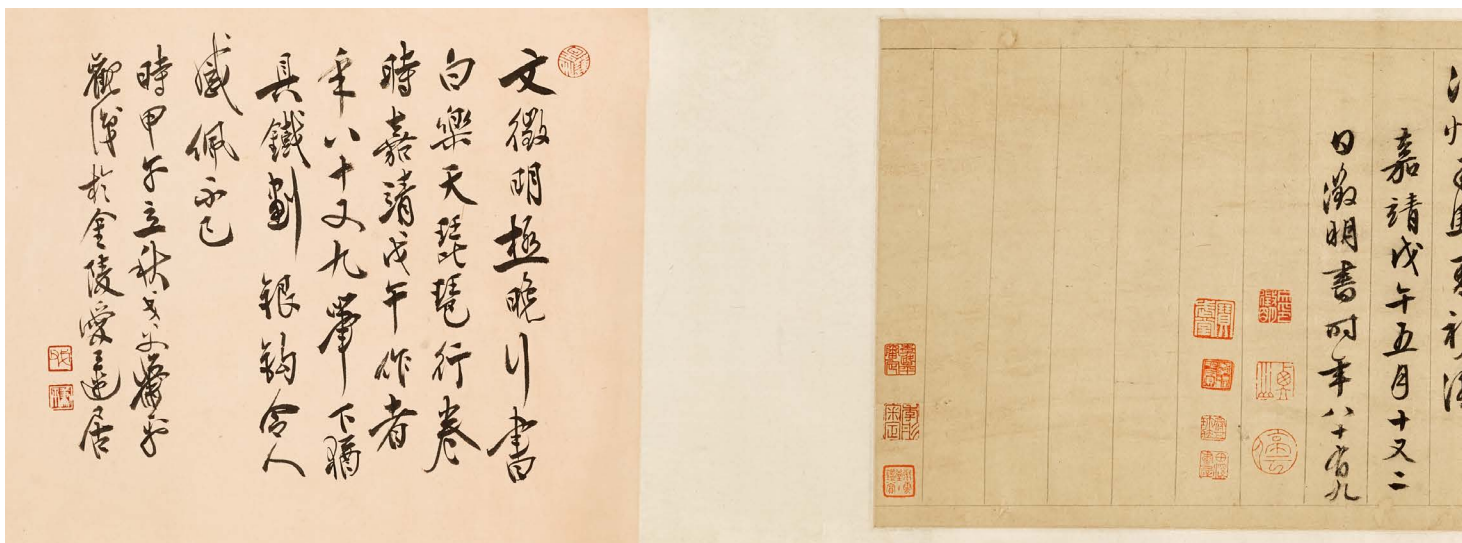 江州司馬青衫濕
嘉靖戊午五月十又二
日徵明書時年八十有九
文徵明極晚行書
白樂天琵琶行卷
時嘉靖戊午作者
年八十又九筆下猶
具鐵劃銀鈎令人
感佩不已
時甲午立秋
觀後於金陵愛蓮居